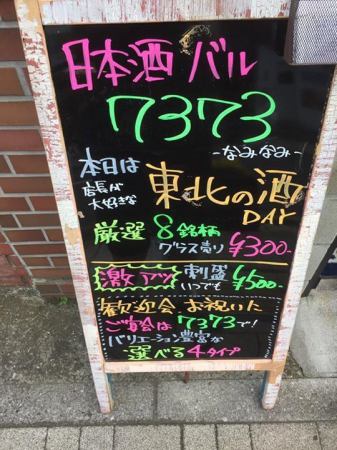 日本酒バル
7373
-なみなみ-
本日は
店長が
大好きな
東北の酒
DAY
厳選8銘柄
グラス売り¥300-
激アツ 刺盛
いつでも ¥500-
歓迎会 お祝いた
ご宴会は7373で!
バリエーション豊富な
選べる4タイプ